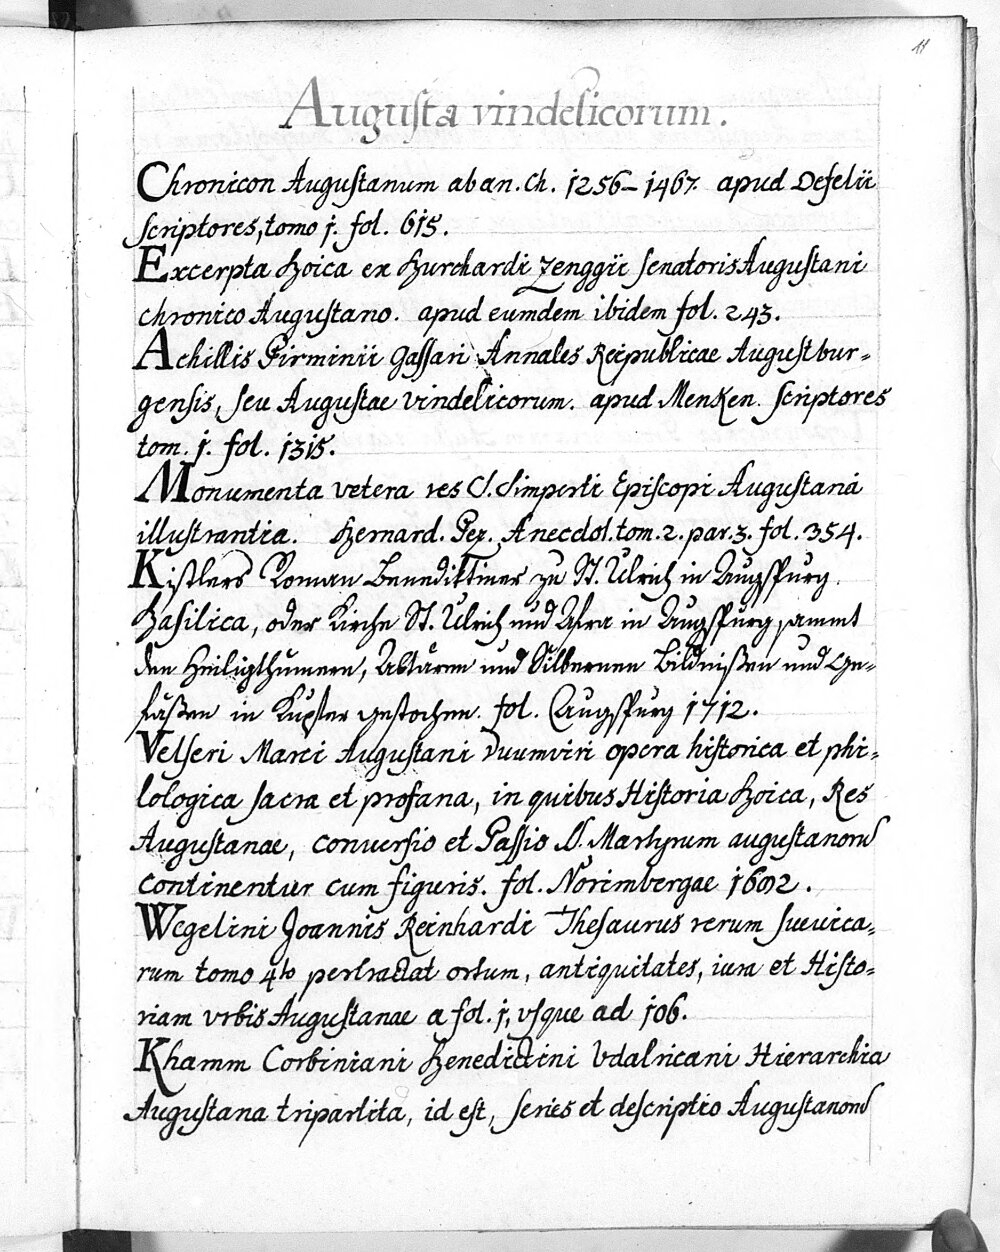 11
Augusta vindelicorum.
Chronicon Augustanum ab an. Ch. 1256–1467. apud Oefelii
scriptores, tomo j. fol. 615.
Excerpta boica ex burchardi Zenggii senatoris Augustani
chronico Augustano. apud eumdem ibidem fol. 243.
Achillis Pirminii Gassari Annales Reipublicae Augustbur=
gensis, seu Augustae vindelicorum. apud Menken. scriptores
tom. j. fol. 1315.
Monumenta vetera res S. Simperti Episcopi Augustani
illustrantia. bernard. Pez. Anecdot. tom. 2. par. 3. fol. 354.
Kistlers Roman Benedictiner zu St. Ulrich in Augspurg.
basilica, oder Kirche St. Ulrich und Afra in Augspurg, sammt
den Heiligthumern, Altären und Silbernen Bildnißen und Ge=
fäßen in Kupfer gestochen. fol. Augspurg 1712.
Velseri Marci Augustani Duumviri opera historica et phi=
lologica sacra et profana, in quibus Historia boica, Res
Augustanae, conversio et Passio S. Martyrum augustanorum
continentur cum figuris. fol. Norimbergae 1692.
Wegelini Joannis Reinhardi Thesaurus rerum suevica=
rum tomo 4to pertractat ortum, antiquitates, iura et Histo=
riam vrbis Augustanae a fol. j, vsque ad 106.
Khamm Corbiniani benedictini Vdalricani Hierarchia
Augustana tripartita, id est, series et descriptio Augustanorum